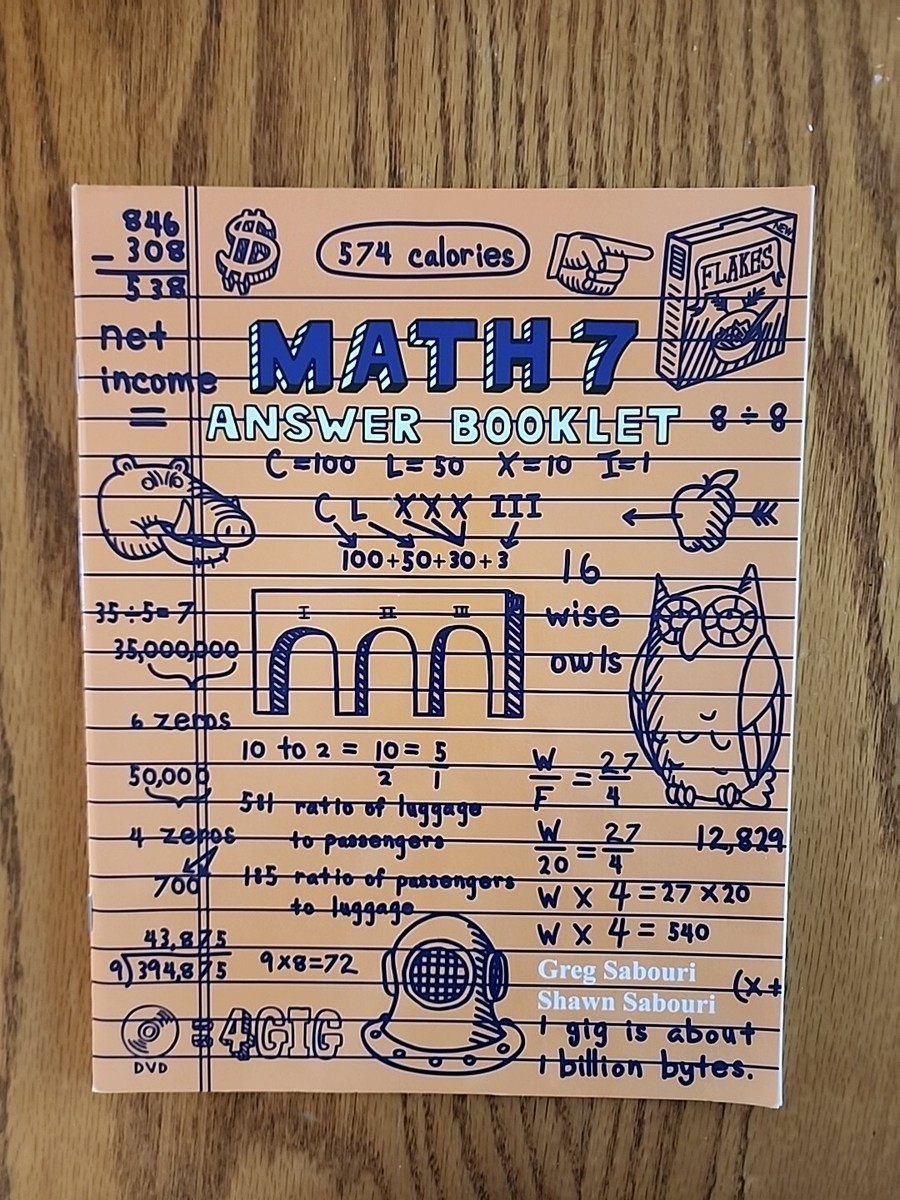 846
- 308
538
574 calories
NEW
FLAKES
net
income
=
MATH 7
ANSWER BOOKLET
8 ÷ 8
C=100 L=50 X=10 I=1
C L XXX III
100+50+30+3
16
wise
owls
I II III
35÷5=7
35,000,000
6 zeros
50,000
4 zeros
700
10 to 2 = 10/2 = 5/1
5:1 ratio of luggage
to passengers
1:5 ratio of passengers
to luggage
W/F = 27/4
W/20 = 27/4
12,829
W X 4 = 27 X 20
W X 4 = 540
43,875
9)394,875
9x8=72
Greg Sabouri
Shawn Sabouri
(x +
DVD
= 4GIG
1 gig is about
1 billion bytes.